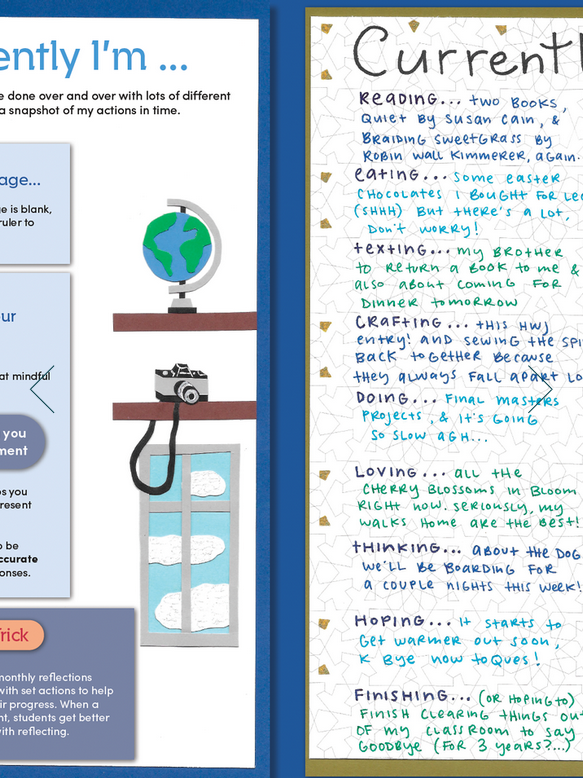 ently I'm ...
e done over and over with lots of different
a snapshot of my actions in time.
age...
ge is blank,
ruler to
ur
at mindful
you
ment
s you
resent
o be
ccurate
onses.
Trick
monthly reflections
with set actions to help
ir progress. When a
nt, students get better
with reflecting.
Currentl
Reading... two books,
Quiet by Susan Cain, &
Braiding Sweetgrass by
Robin Wall Kimmerer, again.
eating... some easter
chocolates I bought for
(shhh) But there's a lot,
Don't worry!
texting... my brother
to return a book to me &
also about coming for
dinner tomorrow
Crafting... this HWJ
entry! and sewing the
back together because
they always fall apart
Doing... final masters
projects, & it's going
so slow agh...
Loving... all the
cherry blossoms in bloom
right now. seriously, my
walks home are the best!
thinking... about the dog
we'll be boarding for
a couple nights this week!
Hoping... it starts to
get warmer out soon,
K Bye now toques!
Finishing... (or hoping to)
finish clearing things out
of my classroom to say
goodbye (for 3 years?...)